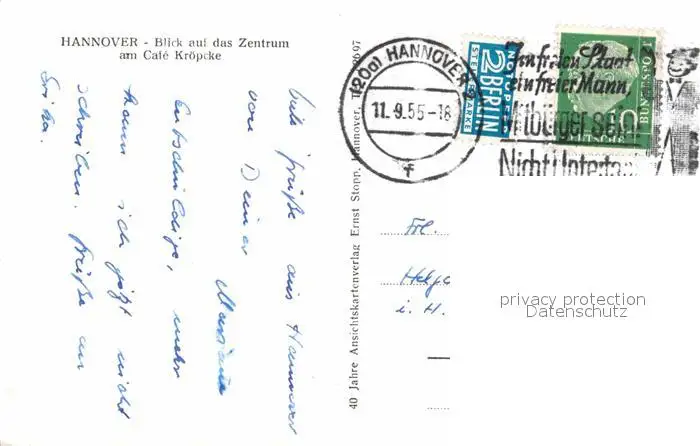 HANNOVER - Blick auf das Zentrum
am Café Kröpcke
Viele Grüße aus Hannover
von Deiner
Marianne
Entschuldige, mehr
kann ich jetzt nicht
schreiben. Grüße an
Erika.
40 Jahre Ansichtskartenverlag Ernst Stopp, Hannover, T 2697
(20a) HANNOVER 2
11.-9.55-18
f
NOTOPFER
2 BERLIN
STEUERMARKE
In freien Staat
ein freier Mann,
Mitbürger sein!
Nicht Untertan
DEUTSCHE
BUNDESPOST
10
Frl.
Helga
i. H.
privacy protection
Datenschutz